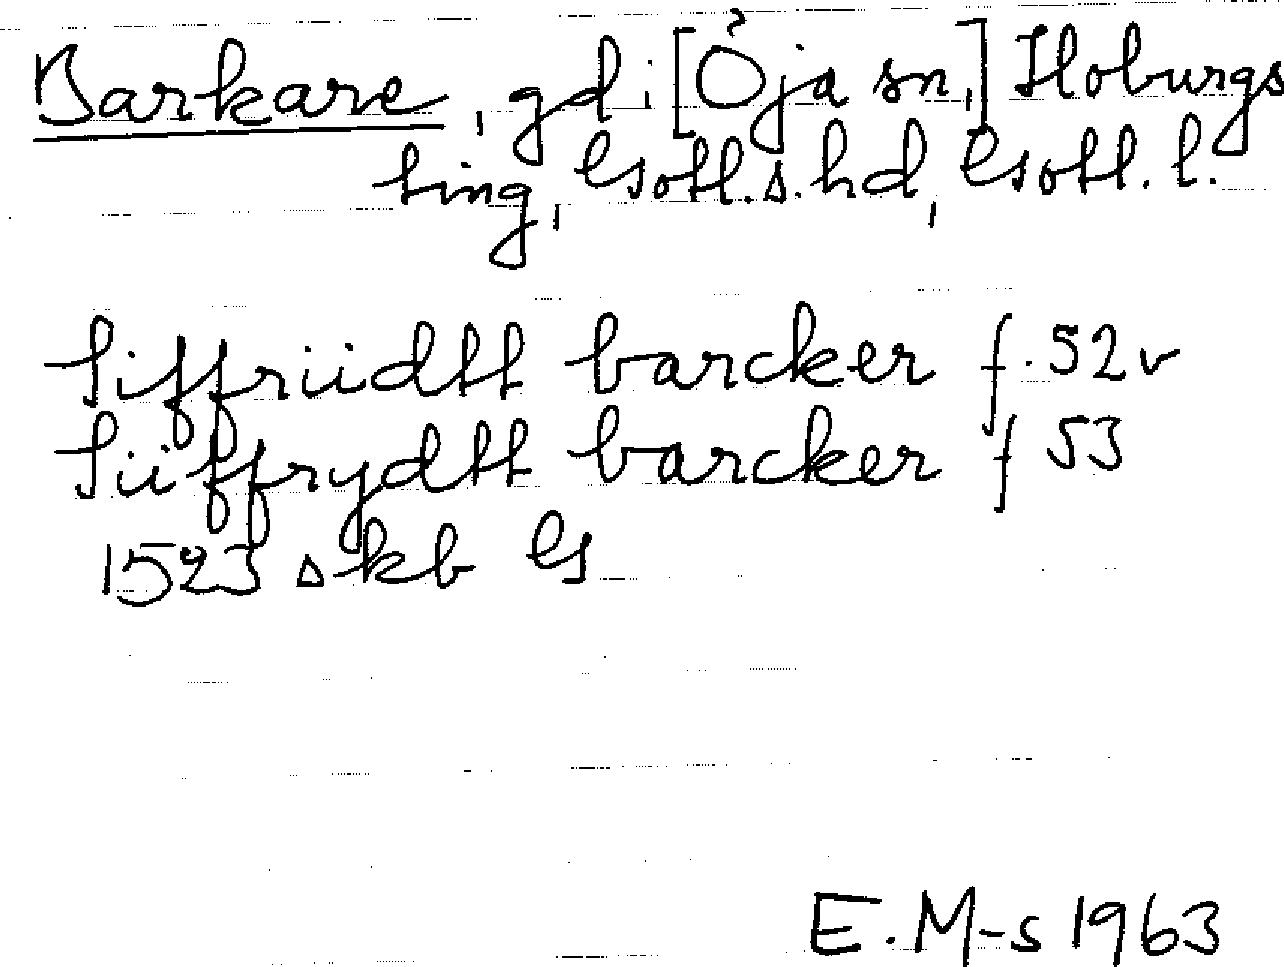 Barkare, gd i [Öja sn,] Hoburgs
ting, Gotl. s. hd, Gotl. l.
Siffriidtt barcker f. 52v
Siiffrydtt barcker f 53
1523 skb G
E. M-s 1963